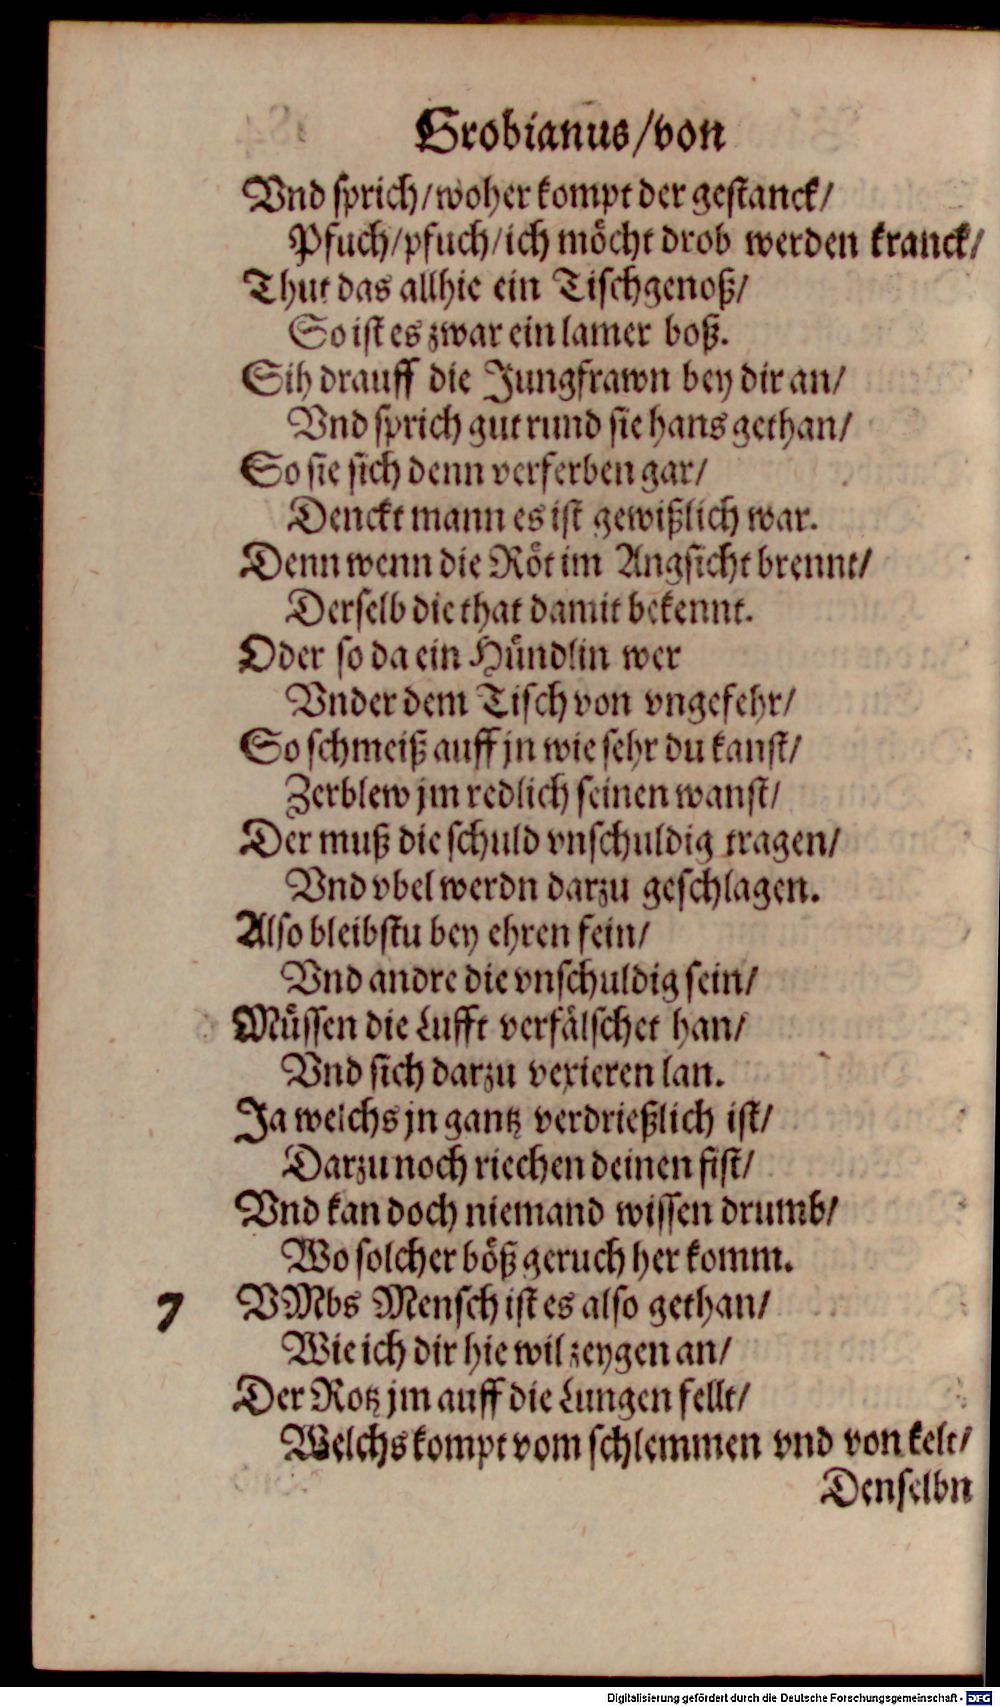 Grobianus/von
Vnd sprich/woher kompt der gestanck/
Pfuch/pfuch/ich möcht drob werden kranck/
Thut das allhie ein Tischgenoß/
So ist es zwar ein lamer boß.
Sih drauff die Jungfrawn bey dir an/
Vnd sprich gut rund sie hans gethan/
So sie sich denn verferben gar/
Denckt mann es ist gewißlich war.
Denn wenn die Röt im Angsicht brennt/
Derselb die that damit bekennt.
Oder so da ein Hündlin wer
Vnder dem Tisch von vngefehr/
So schmeiß auff jn wie sehr du kanst/
Zerblew jm redlich seinen wanst/
Der muß die schuld vnschuldig tragen/
Vnd vbel werdn darzu geschlagen.
Also bleibstu bey ehren fein/
Vnd andre die vnschuldig sein/
Müssen die Lufft verfälschet han/
Vnd sich darzu vexieren lan.
Ja welchs jn gantz verdrießlich ist/
Darzu noch riechen deinen fist/
Vnd kan doch niemand wissen drumb/
Wo solcher böß geruch her komm.
7 VMbs Mensch ist es also gethan/
Wie ich dir hie wil zeygen an/
Der Rotz jm auff die Lungen fellt/
Welchs kompt vom schlemmen vnd von kelt/
Denselbn
Digitalisierung gefördert durch die Deutsche Forschungsgemeinschaft - DFG